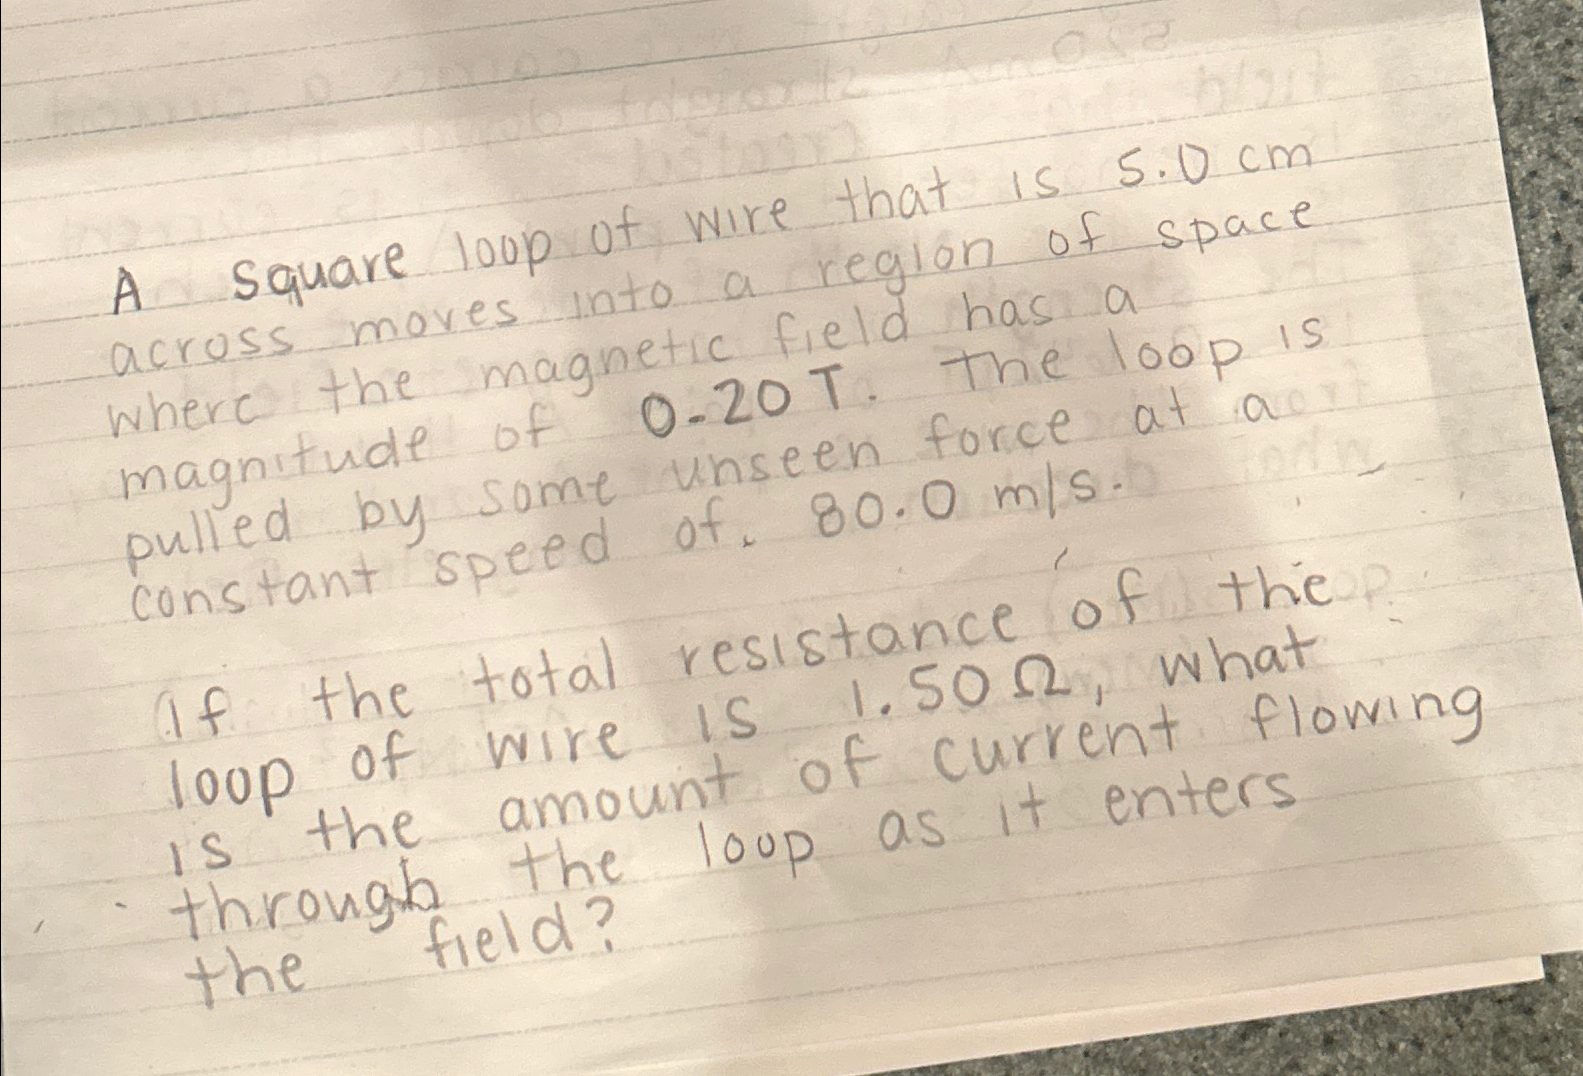 A square loop of wire that is 5.0 cm
across moves into a region of space
where the magnetic field has a
magnitude of 0.20 T. The loop is
pulled by some unseen force at a
constant speed of. 80.0 m/s.
If the total resistance of the
loop of wire is 1.50 Ω, what
is the amount of current flowing
through the loop as it enters
the field?